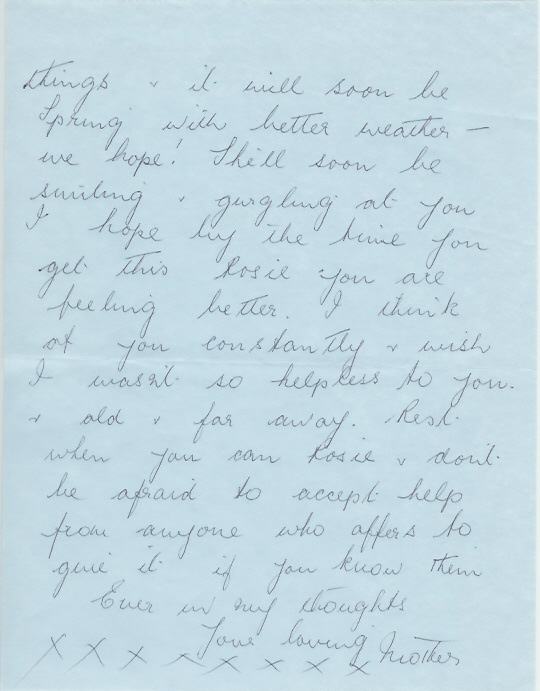 things & it will soon be
Spring with better weather —
we hope! She'll soon be
smiling & gurgling at you
I hope by the time you
get this Rosie you are
feeling better. I think
of you constantly & wish
I wasn't so helpless to you.
& old & far away. Rest
when you can Rosie & don't
be afraid to accept help
from anyone who offers to
give it if you know them
Ever in my thoughts
Your loving Mother
X X X X X X X X